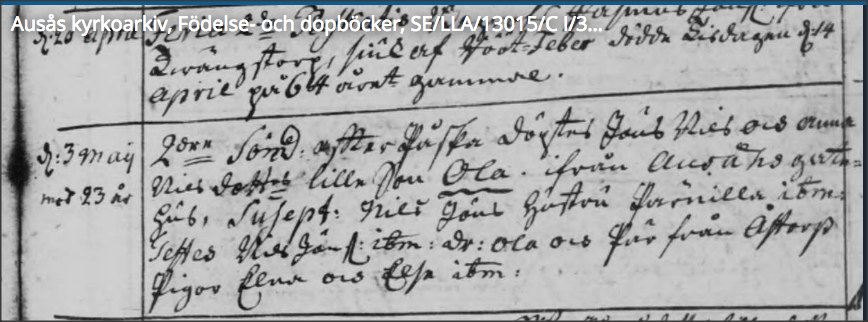 Ausås kyrkoarkiv, Födelse- och dopböcker, SE/LLA/13015/C I/3...
d: 26 april
Qwängstorp, siuk af Röot-feber dödde Tisdagen d: 14
April på 64 året gammal.
d: 3 maij 2dre Sönd. efter Påska döptes Jöns Nils och Anna
mod 23 år Nils dotters lille Son Ola. ifrån Ausås gate-
hus, Susept: Nils Jöns hustru Pärnilla ibm:
Testes Nils Jöns: ibm: dr: Ola och Pär från Åstorp
Pigor Elna och Elsa ibm: